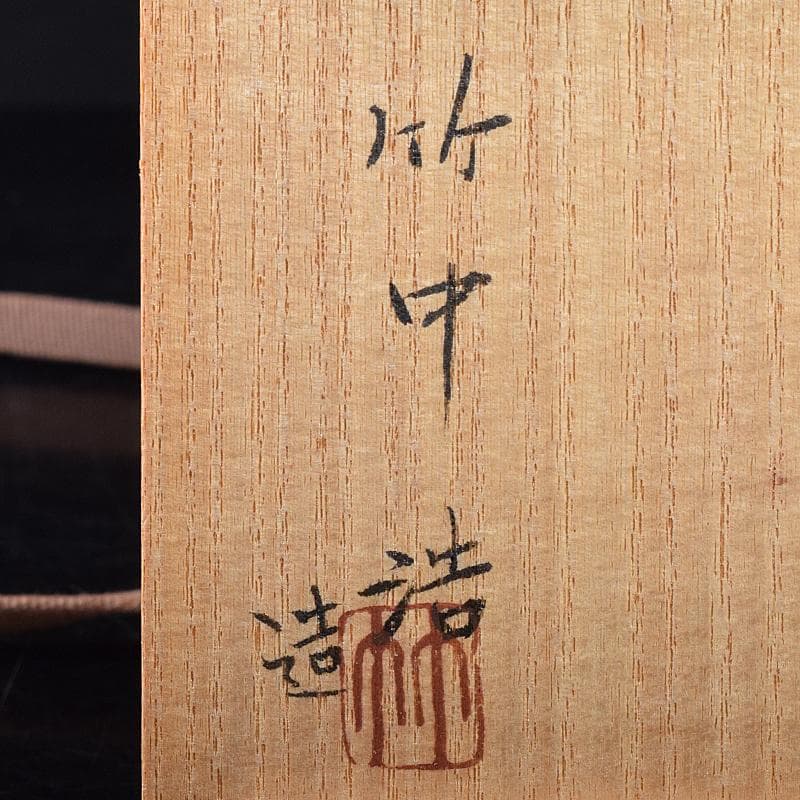 竹中浩
造
竹